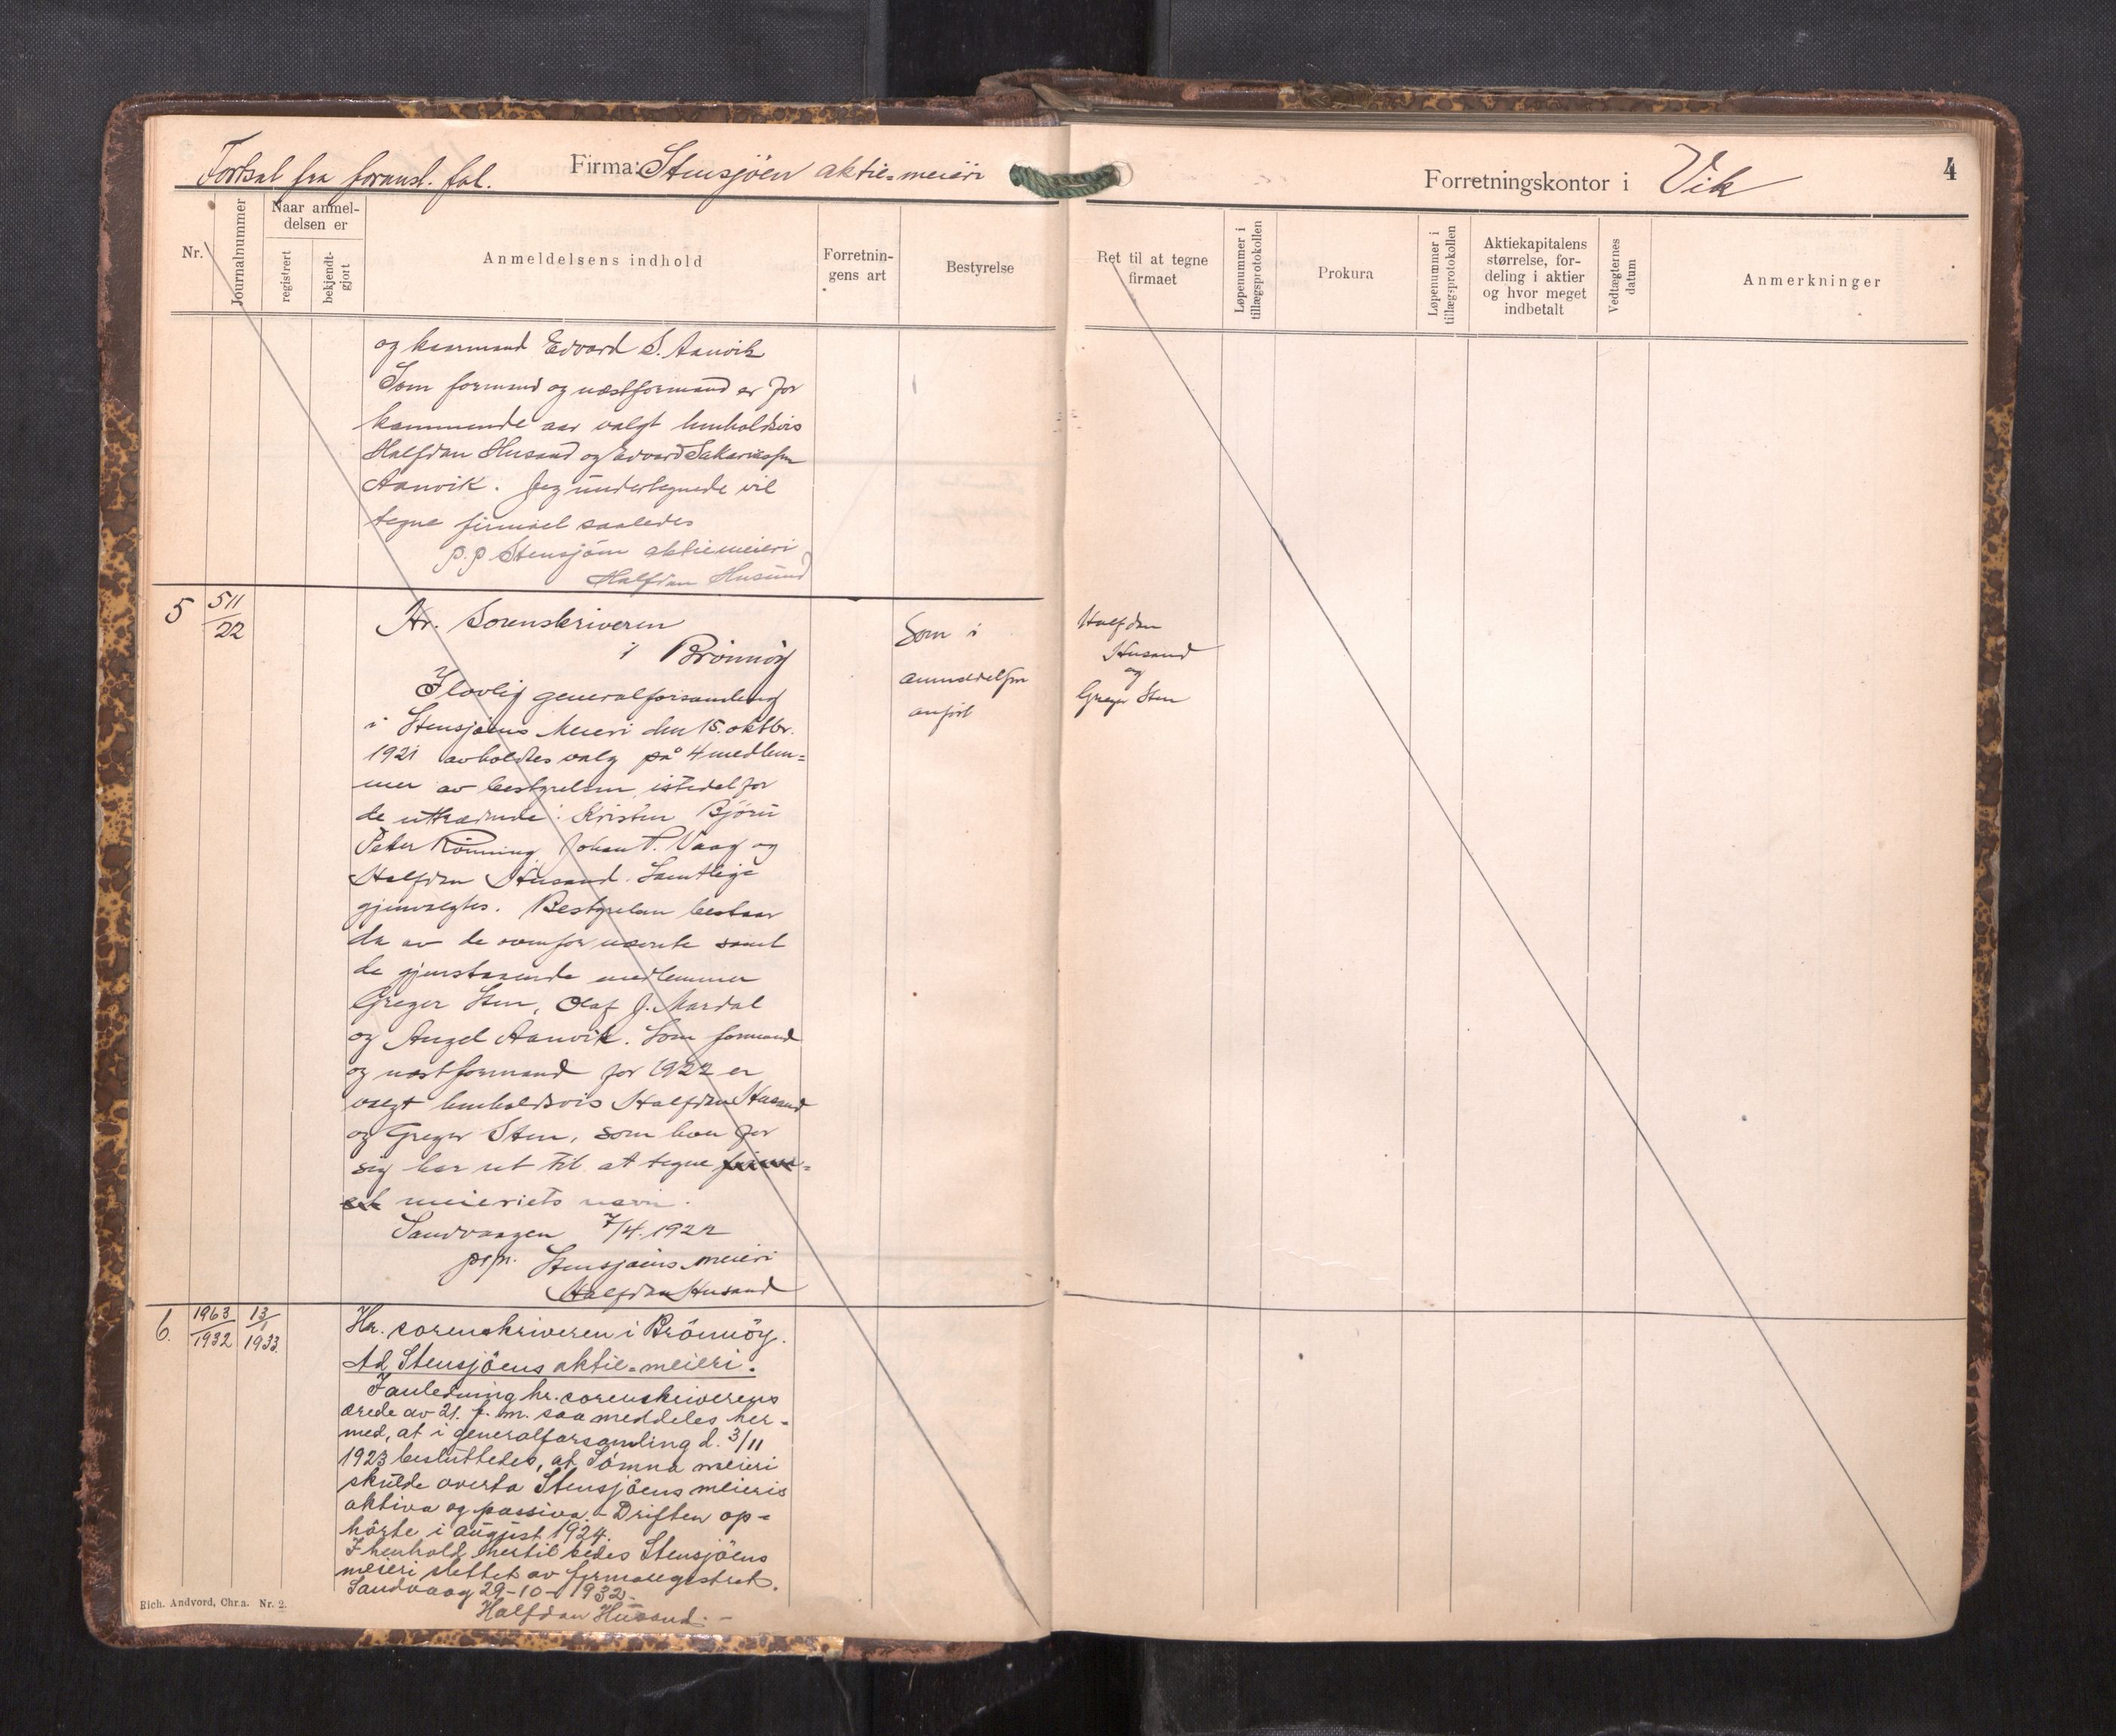 Fortsat fra foranst. fol.
Firma: Stensjöen aktie=meieri
Nr.
Journalnummer
Naar anmel-
delsen er
registrert
bekjendt-
gjort
Anmeldelsens indhold
Forretnin-
gens art
Bestyrelse
og kaarmand Edvard S. Aanvik
Som formand og næstformand er for
kommende aar valgt henholdsvis
Halfdan Husand og Edvard Sakariassen
Aanvik. Jeg undertegnede vil
tegne firmaet saaledes
p.p Stensjöen aktiemeieri
Halfdan Husand
5
511
22
Hr. Sorenskriveren
i Brönnöy
I lovlig generalforsamling
i Stensjöens Meieri den 15. oktbr.
1921 avholdtes valg på 4 medlem=
mer av bestyrelsen istedet for
de uttrædende: Kristen Björu
Peter Rönning, Johan P. Vaag og
Halfdan Husand. Samtlige
gjenvalgtes. Bestyrelsen bestaar
da av de ovenfor nævnte samt
de gjenstaaende medlemmer
Greger Sten, Olaf J. Mardal
og Angel Aanvik. Som formand
og næstformand for 1922 er
valgt henholdsvis Halfdan Husand
og Greger Sten, som hver for
sig har ret til at tegne firma=
et meieriets navn.
Sandvaagen 7/4. 1922
pr pr. Stensjöens meieri
Halfdan Husand
Som i
anmeldelsen
anført
6.
1963
1932
13/1
1933.
Hr. sorenskriveren i Brönnöy.
Ad Stensjöens aktie=meieri.
I anledning hr. sorenskriverens
ærede av 21. f. m. saa meddeles her-
med, at i generalforsamling d. 3/11
1923 besluttedes, at Sömna meieri
skulde overta Stensjöens meieris
aktiva og passiva. - Driften op=
hörte i august 1924.
I henhold hertil bedes Stensjöens
meieri slettet av firmaregistret.
Sandvaag 29-10-1932.
Halfdan Husand. -
Rich. Andvord, Chr.a. Nr. 2.
Forretningskontor i Vik
4
Ret til at tegne
firmaet
Løpenummer i
tillægsprotokollen
Prokura
Løpenummer i
tillægsprotokollen
Aktiekapitalens
størrelse, for-
deling i aktier
og hvor meget
indbetalt
Vedtægternes
datum
Anmerkninger
Halfdan
Husand
og
Greger Sten